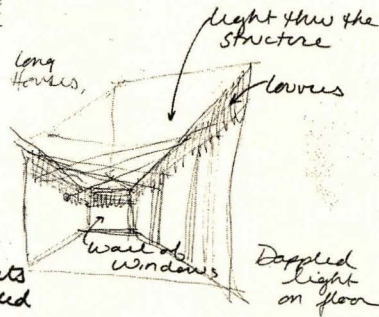 light thru the
structure
long
Houses,
louvres
wall of
windows
Dappled
light
on floor